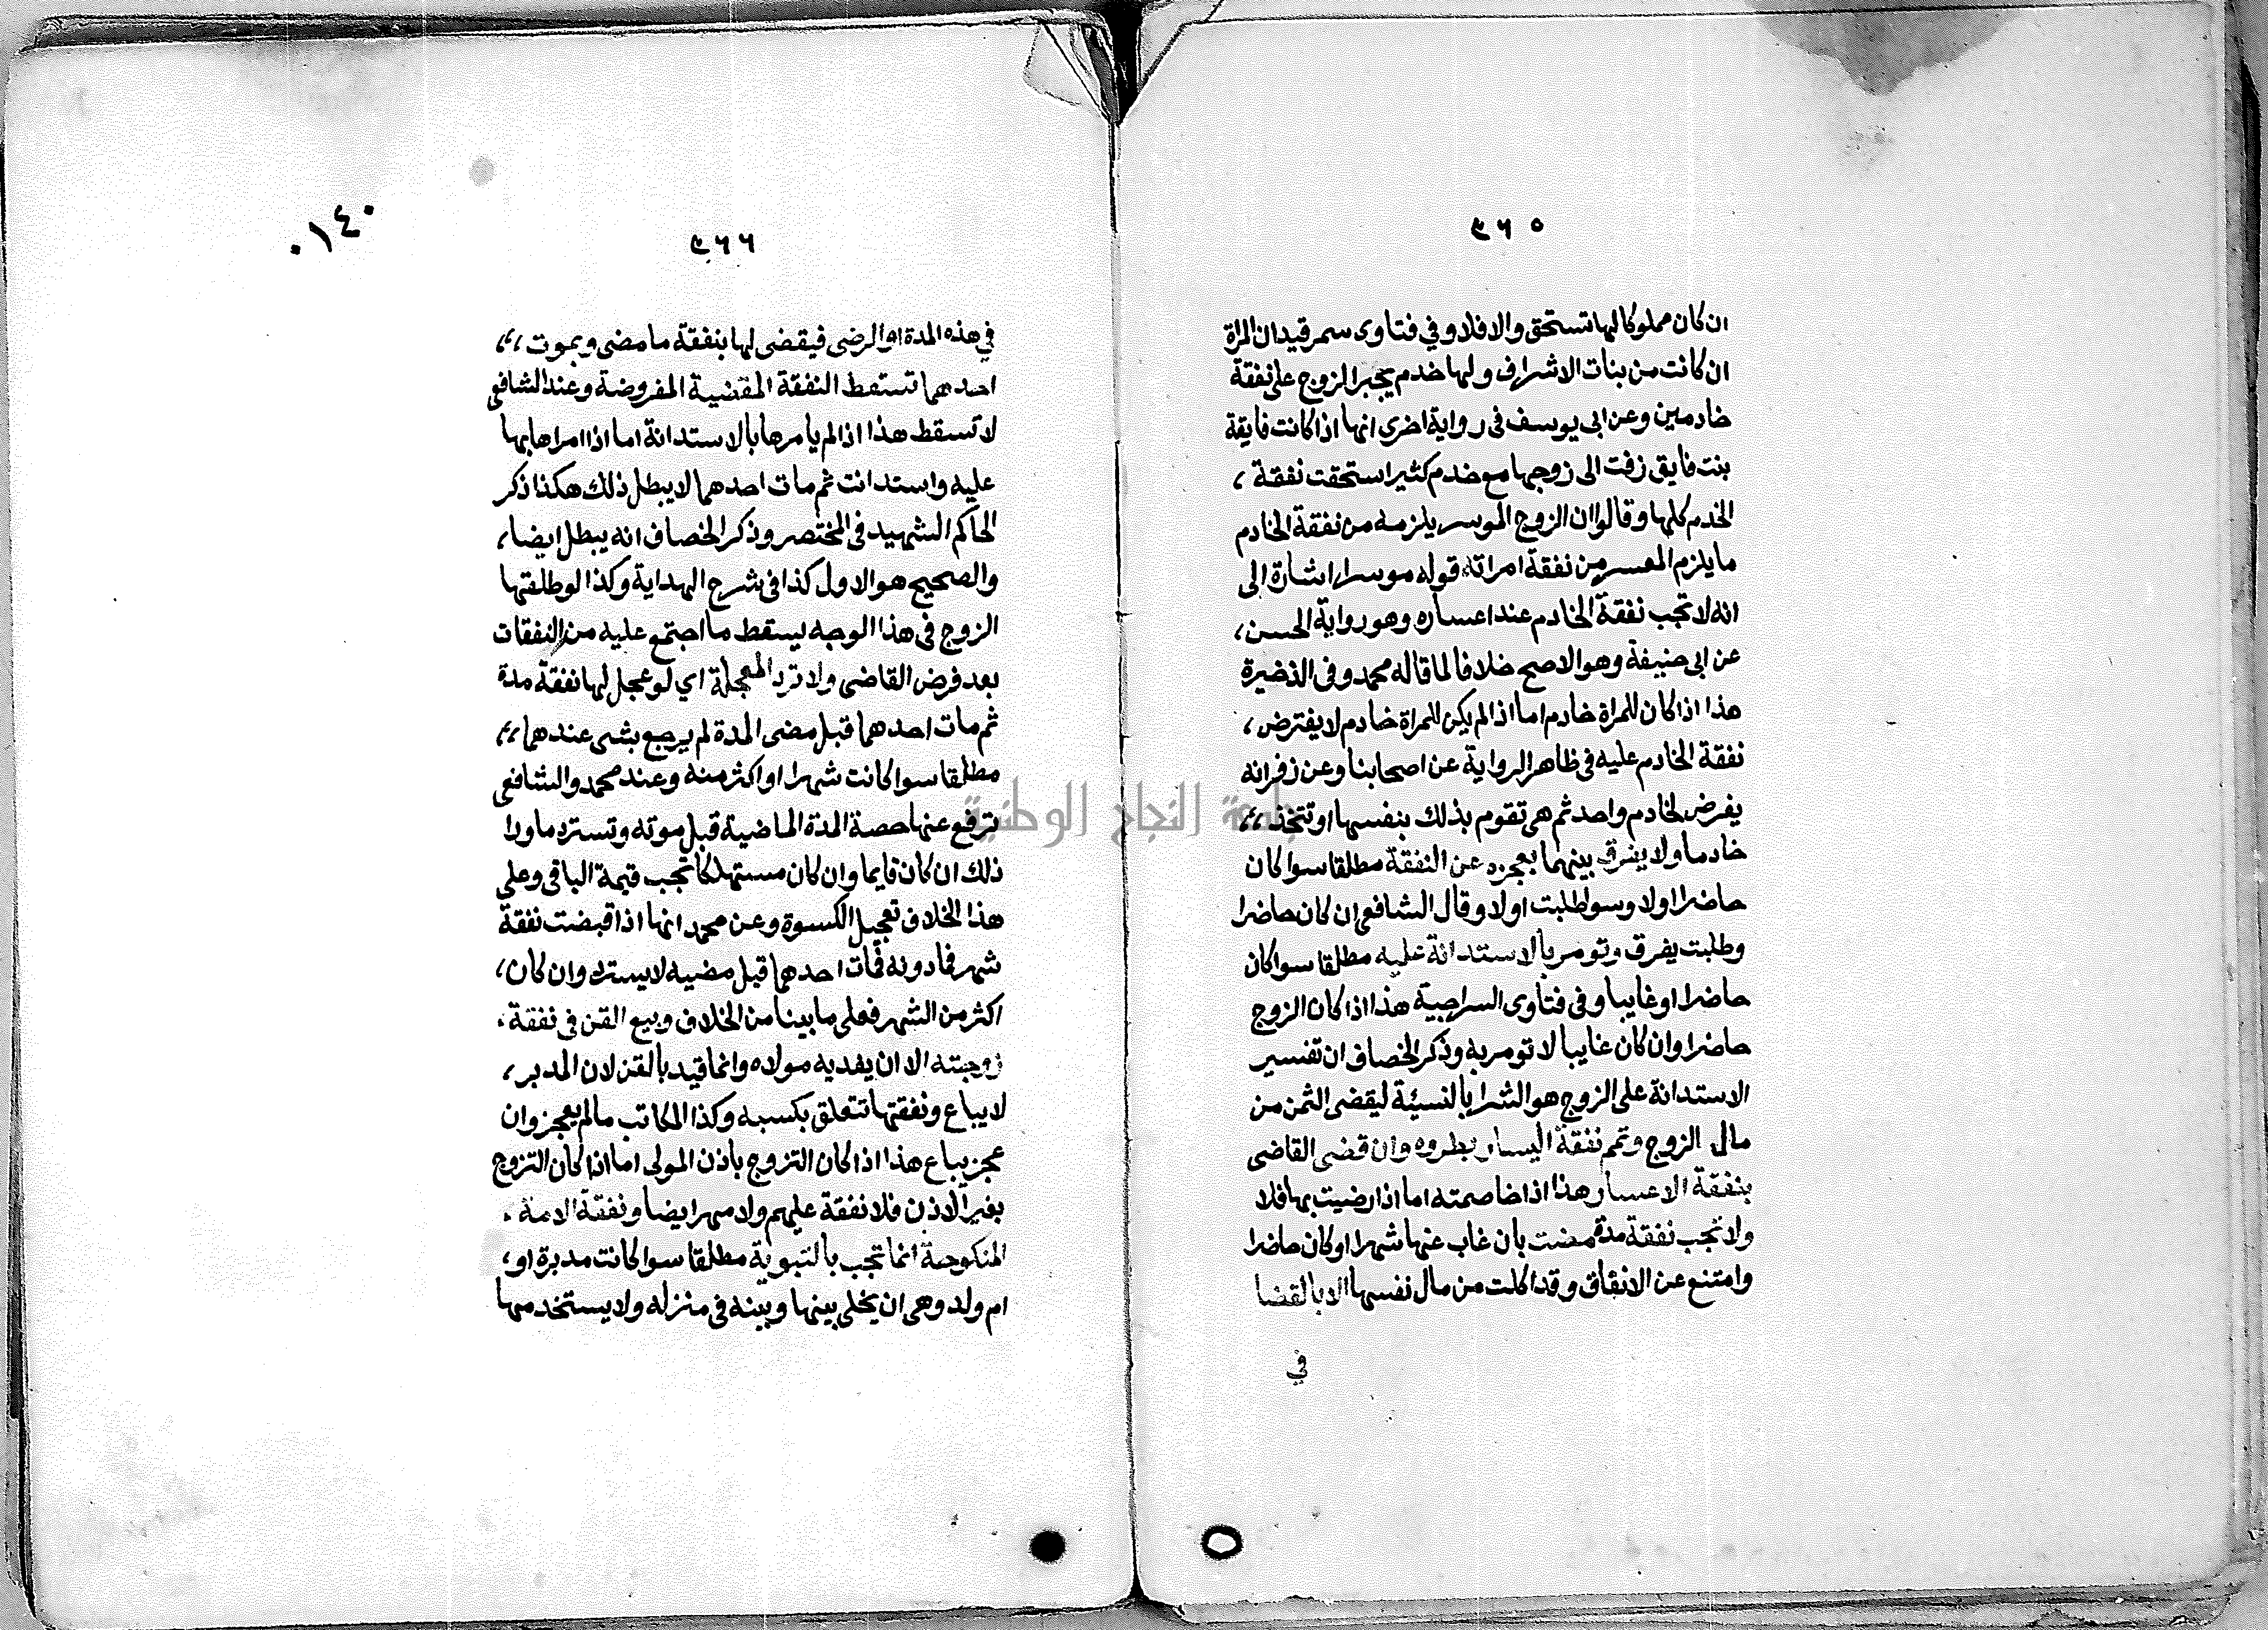 ٤٦٥
ان كان مملوكا لها تستحق والا فلا وفي فتاوى سمرقيد ان المراة
ان كانت من بنات الاشراف ولها خدم يجبر الزوج على نفقة
خادمين وعن ابي يوسف في رواية اخرى انها اذا كانت فايقة
بنت فايق زفت الى زوجها مع خدم كثير استحقت نفقة ،
الخدم كلها وقالوا ان الزوج الموسر يلزمه من نفقة الخادم
ما يلزم المعسر من نفقة امراته قوله موسرا اشارة الى
انه لا تجب نفقة الخادم عند اعساره وهو رواية الحسن ،
عن ابي حنيفة وهو الاصح خلافا لما قاله محمد وفي الذخيرة
هذا اذا كان للمراة خادم اما اذا لم يكن للمراة خادم لا يفترض ،
نفقة الخادم عليه في ظاهر الرواية عن اصحابنا وعن زفر انه
يفرض لخادم واحد ثم هي تقوم بذلك بنفسها او تتخذ ،،
خادما ولا يفرق بينهما بعجزه عن النفقة مطلقا سوا كان
حاضرا اولا وسوا طلبت اولا وقال الشافعي ان كان حاضرا
وطلبت يفرق وتومر بالاستدانة عليه مطلقا سوا كان
حاضرا او غايبا وفي فتاوى السراجية هذا اذا كان الزوج
حاضرا وان كان غايبا لا تومر به وذكر الخصاف ان تفسير
الاستدانة على الزوج هو الشرا بالنسيئة ليقضى الثمن من
مال الزوج وتم نفقة اليسار بطروه وان قضى القاضي
بنفقة الاعسار هذا اذا خاصمته اما اذا رضيت بها فلا
ولا تجب نفقة مدة مضت بان غاب عنها شهرا او كان حاضرا
وامتنع عن الانفاق وقد اكلت من مال نفسها الا بالقضا
في
٠١٤٠
٤٦٦
في هذه المدة او الرضى فيقضى لها بنفقة ما مضى وبموت ،،
احدهما تسقط النفقة المقضية المفروضة وعند الشافعي
لا تسقط هذا اذا لم يامرها بالاستدانة اما اذا امراها بها
عليه واستدانت ثم مات احدهما لا يبطل ذلك هكذا ذكر
الحاكم الشهيد في المختصر وذكر الخصاف انه يبطل ايضا ،
والصحيح هو الاول كذا في شرح الهداية وكذا لو طلقتها
الزوج في هذا الوجه يسقط ما اجتمع عليه من النفقات
بعد فرض القاضي ولا ترد المعجلة اي لو عجل لها نفقة مدة
ثم مات احدهما قبل مضي المدة لم يرجع بشي عندهما ،،
مطلقا سوا كانت شهرا او اكثر منه وعند محمد والشافعي
ترفع عنها حصة المدة الماضية قبل موته وتسترد ما ورا
ذلك ان كان قايما وان كان مستهلكا تجب قيمة الباقي وعلى
هذا الخلاف تعجيل الكسوة وعن محمد انها اذا قبضت نفقة
شهر فما دونه فمات احدهما قبل مضيه لا يسترد وان كان ،
اكثر من الشهر فعلى ما بينا من الخلاف وبيع القن في نفقة .
زوجيته الا ان يفديه مولاه وانما قيد بالقن لان المدبر ،
لا يباع ونفقتها تتعلق بكسبه وكذا المكاتب ما لم يعجز وان
عجز يباع هذا اذا كان التزوج باذن المولى اما اذا كان التزوج
بغير الاذن فلا نفقة عليهم ولا مهر ايضا ونفقة الامة .
المنكوحة انما تجب بالتبوية مطلقا سوا كانت مدبرة او ،
ام ولد وهي ان يخلى بينها وبينه في منزله ولا يستخدمها
جامعة النجاح الوطنية